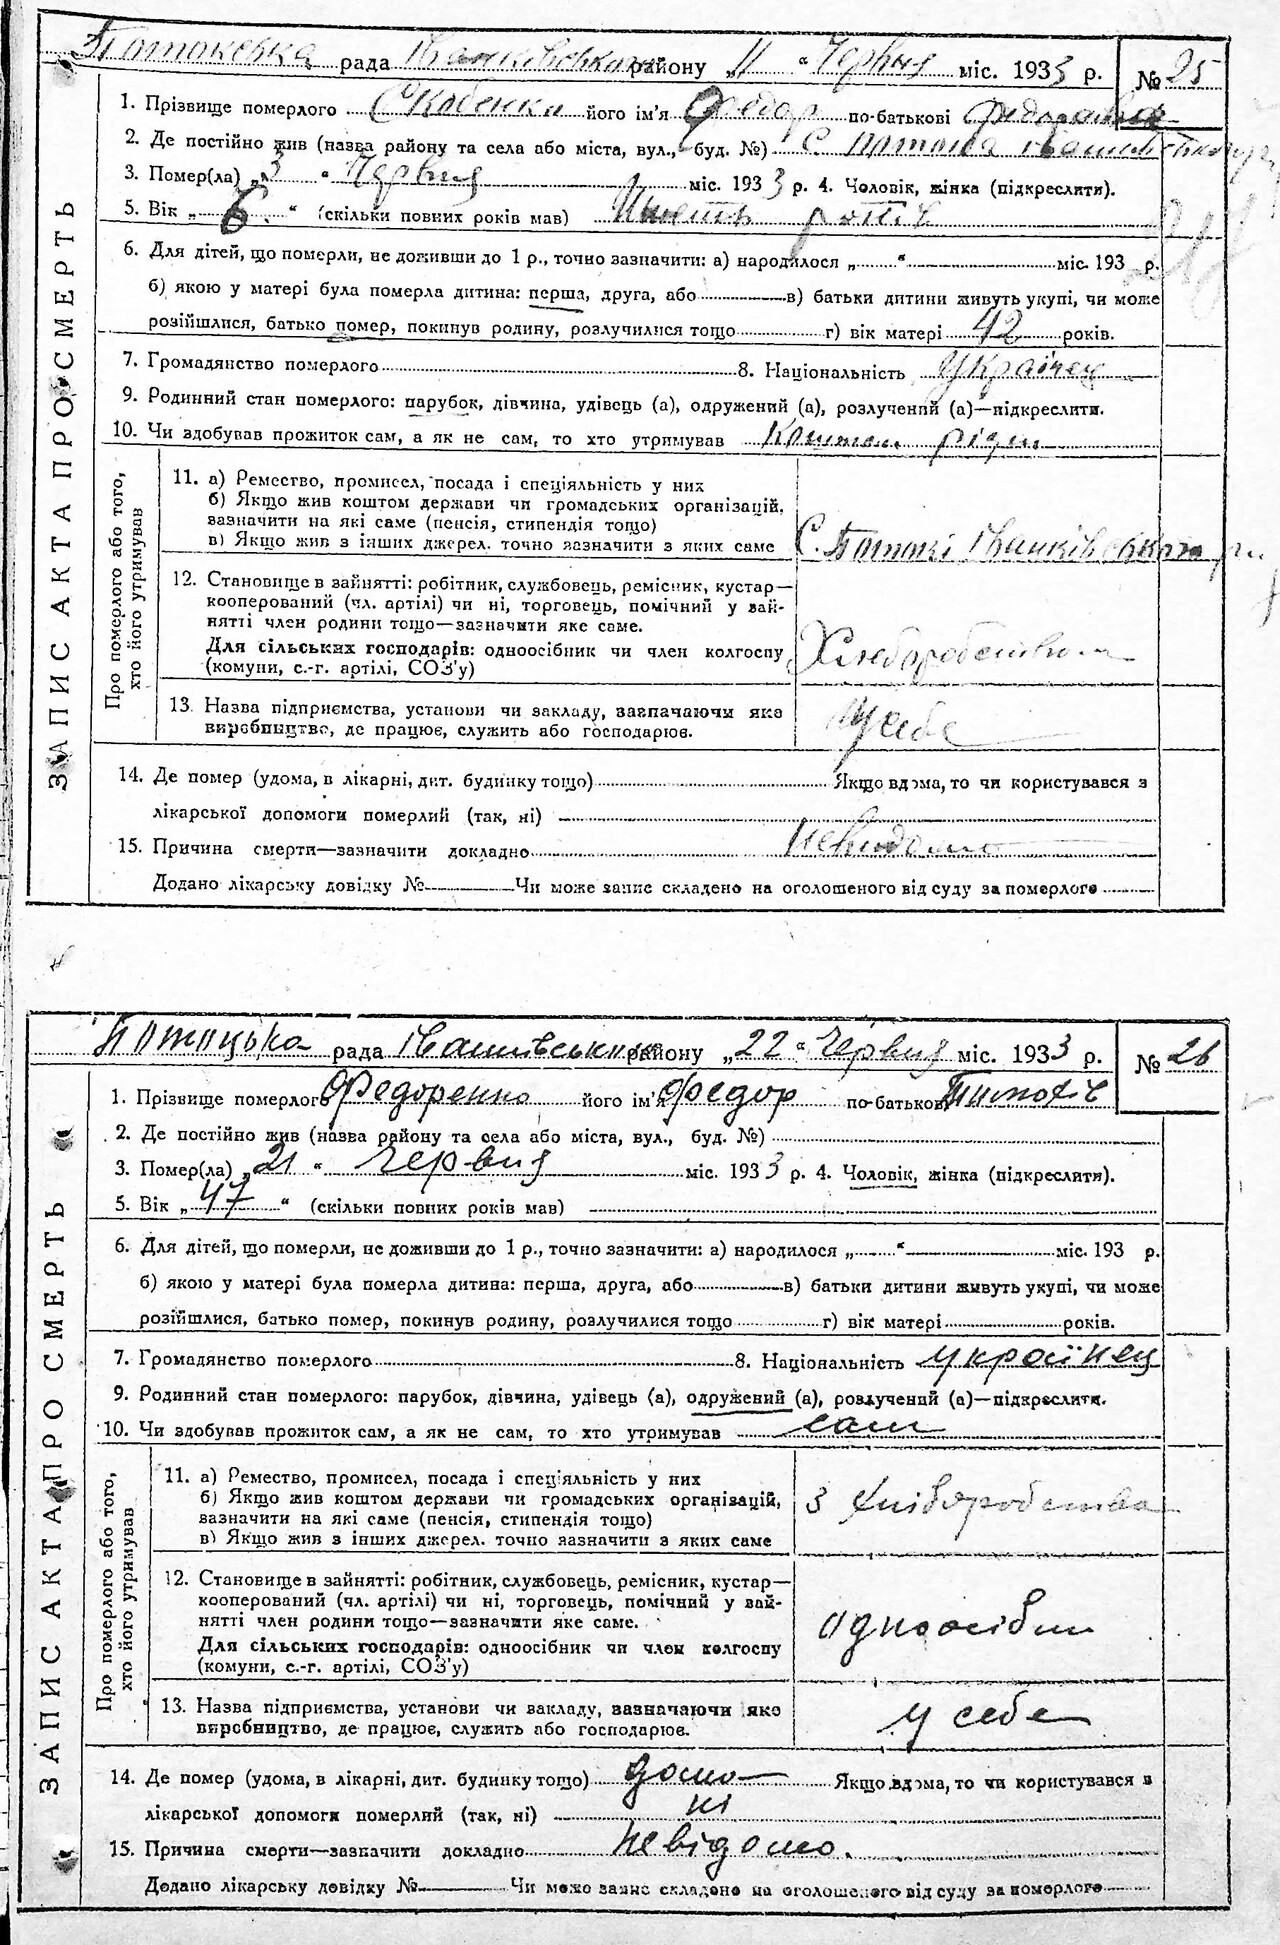 ЗАПИС АКТА ПРО СМЕРТЬ
рада району „11 “ Червня міс. 1933 р. № 25
1. Прізвище померлого його ім'я Федор по-батькові
2. Де постійно жив (назва району та села або міста, вул., буд. №) С.
3. Помер(ла) „3 “ Червня міс. 1933 р. 4. Чоловік, жінка (підкреслити).
5. Вік „ 6. “ (скільки повних років мав)
6. Для дітей, що померли, не доживши до 1 р., точно зазначити: а) народилося „ “ міс. 193 р.
б) якою у матері була померла дитина: перша, друга, або в) батьки дитини живуть укупі, чи може
розійшлися, батько помер, покинув родину, розлучилися тощо г) вік матері 42 років.
7. Громадянство померлого 8. Національність Українец
9. Родинний стан померлого: парубок, дівчина, удівець (а), одружений (а), розлучений (а)—підкреслити.
10. Чи здобував прожиток сам, а як не сам, то хто утримував
Про померлого або того,
хто його утримував
11. а) Ремество, промисел, посада і спеціяльність у них
б) Якщо жив коштом держави чи громадських організацій,
зазначити на які саме (пенсія, стипендія тощо)
в) Якщо жив з інших джерел. точно зазначити з яких саме С.
12. Становище в зайнятті: робітник, службовець, ремісник, кустар—
кооперований (чл. артілі) чи ні, торговець, помічний у зай-
нятті член родини тощо—зазначити яке саме.
Для сільських господарів: одноосібник чи член колгоспу
(комуни, с.-г. артілі, СОЗ'у)
13. Назва підприємства, установи чи закладу, зазначаючи яке
виробництво, де працює, служить або господарює. у себе
14. Де помер (удома, в лікарні, дит. будинку тощо) Якщо вдома, то чи користувався з
лікарської допомоги померлий (так, ні)
15. Причина смерти—зазначити докладно невидомо
Додано лікарську довідку № Чи може запис складено на оголошеного від суду за померлого
ЗАПИС АКТА ПРО СМЕРТЬ
Потоцька рада району „22 “ Червня міс. 1933 р. № 26
1. Прізвище померлого Федоренко його ім'я Федор по-батькові
2. Де постійно жив (назва району та села або міста, вул., буд. №)
3. Помер(ла) „21 “ Червня міс. 1933 р. 4. Чоловік, жінка (підкреслити).
5. Вік „ 47 “ (скільки повних років мав)
6. Для дітей, що померли, не доживши до 1 р., точно зазначити: а) народилося „ “ міс. 193 р.
б) якою у матері була померла дитина: перша, друга, або в) батьки дитини живуть укупі, чи може
розійшлися, батько помер, покинув родину, розлучилися тощо г) вік матері років.
7. Громадянство померлого 8. Національність українец
9. Родинний стан померлого: парубок, дівчина, удівець (а), одружений (а), розлучений (а)—підкреслити.
10. Чи здобував прожиток сам, а як не сам, то хто утримував сам
Про померлого або того,
хто його утримував
11. а) Ремество, промисел, посада і спеціяльність у них
б) Якщо жив коштом держави чи громадських організацій,
зазначити на які саме (пенсія, стипендія тощо)
в) Якщо жив з інших джерел. точно зазначити з яких саме з хліборобства
12. Становище в зайнятті: робітник, службовець, ремісник, кустар—
кооперований (чл. артілі) чи ні, торговець, помічний у зай-
нятті член родини тощо—зазначити яке саме.
Для сільських господарів: одноосібник чи член колгоспу
(комуни, с.-г. артілі, СОЗ'у)
13. Назва підприємства, установи чи закладу, зазначаючи яке
виробництво, де працює, служить або господарює. у себе
14. Де помер (удома, в лікарні, дит. будинку тощо) дома Якщо вдома, то чи користувався з
лікарської допомоги померлий (так, ні) ні
15. Причина смерти—зазначити докладно невідомо.
Додано лікарську довідку № Чи може запис складено на оголошеного від суду за померлого